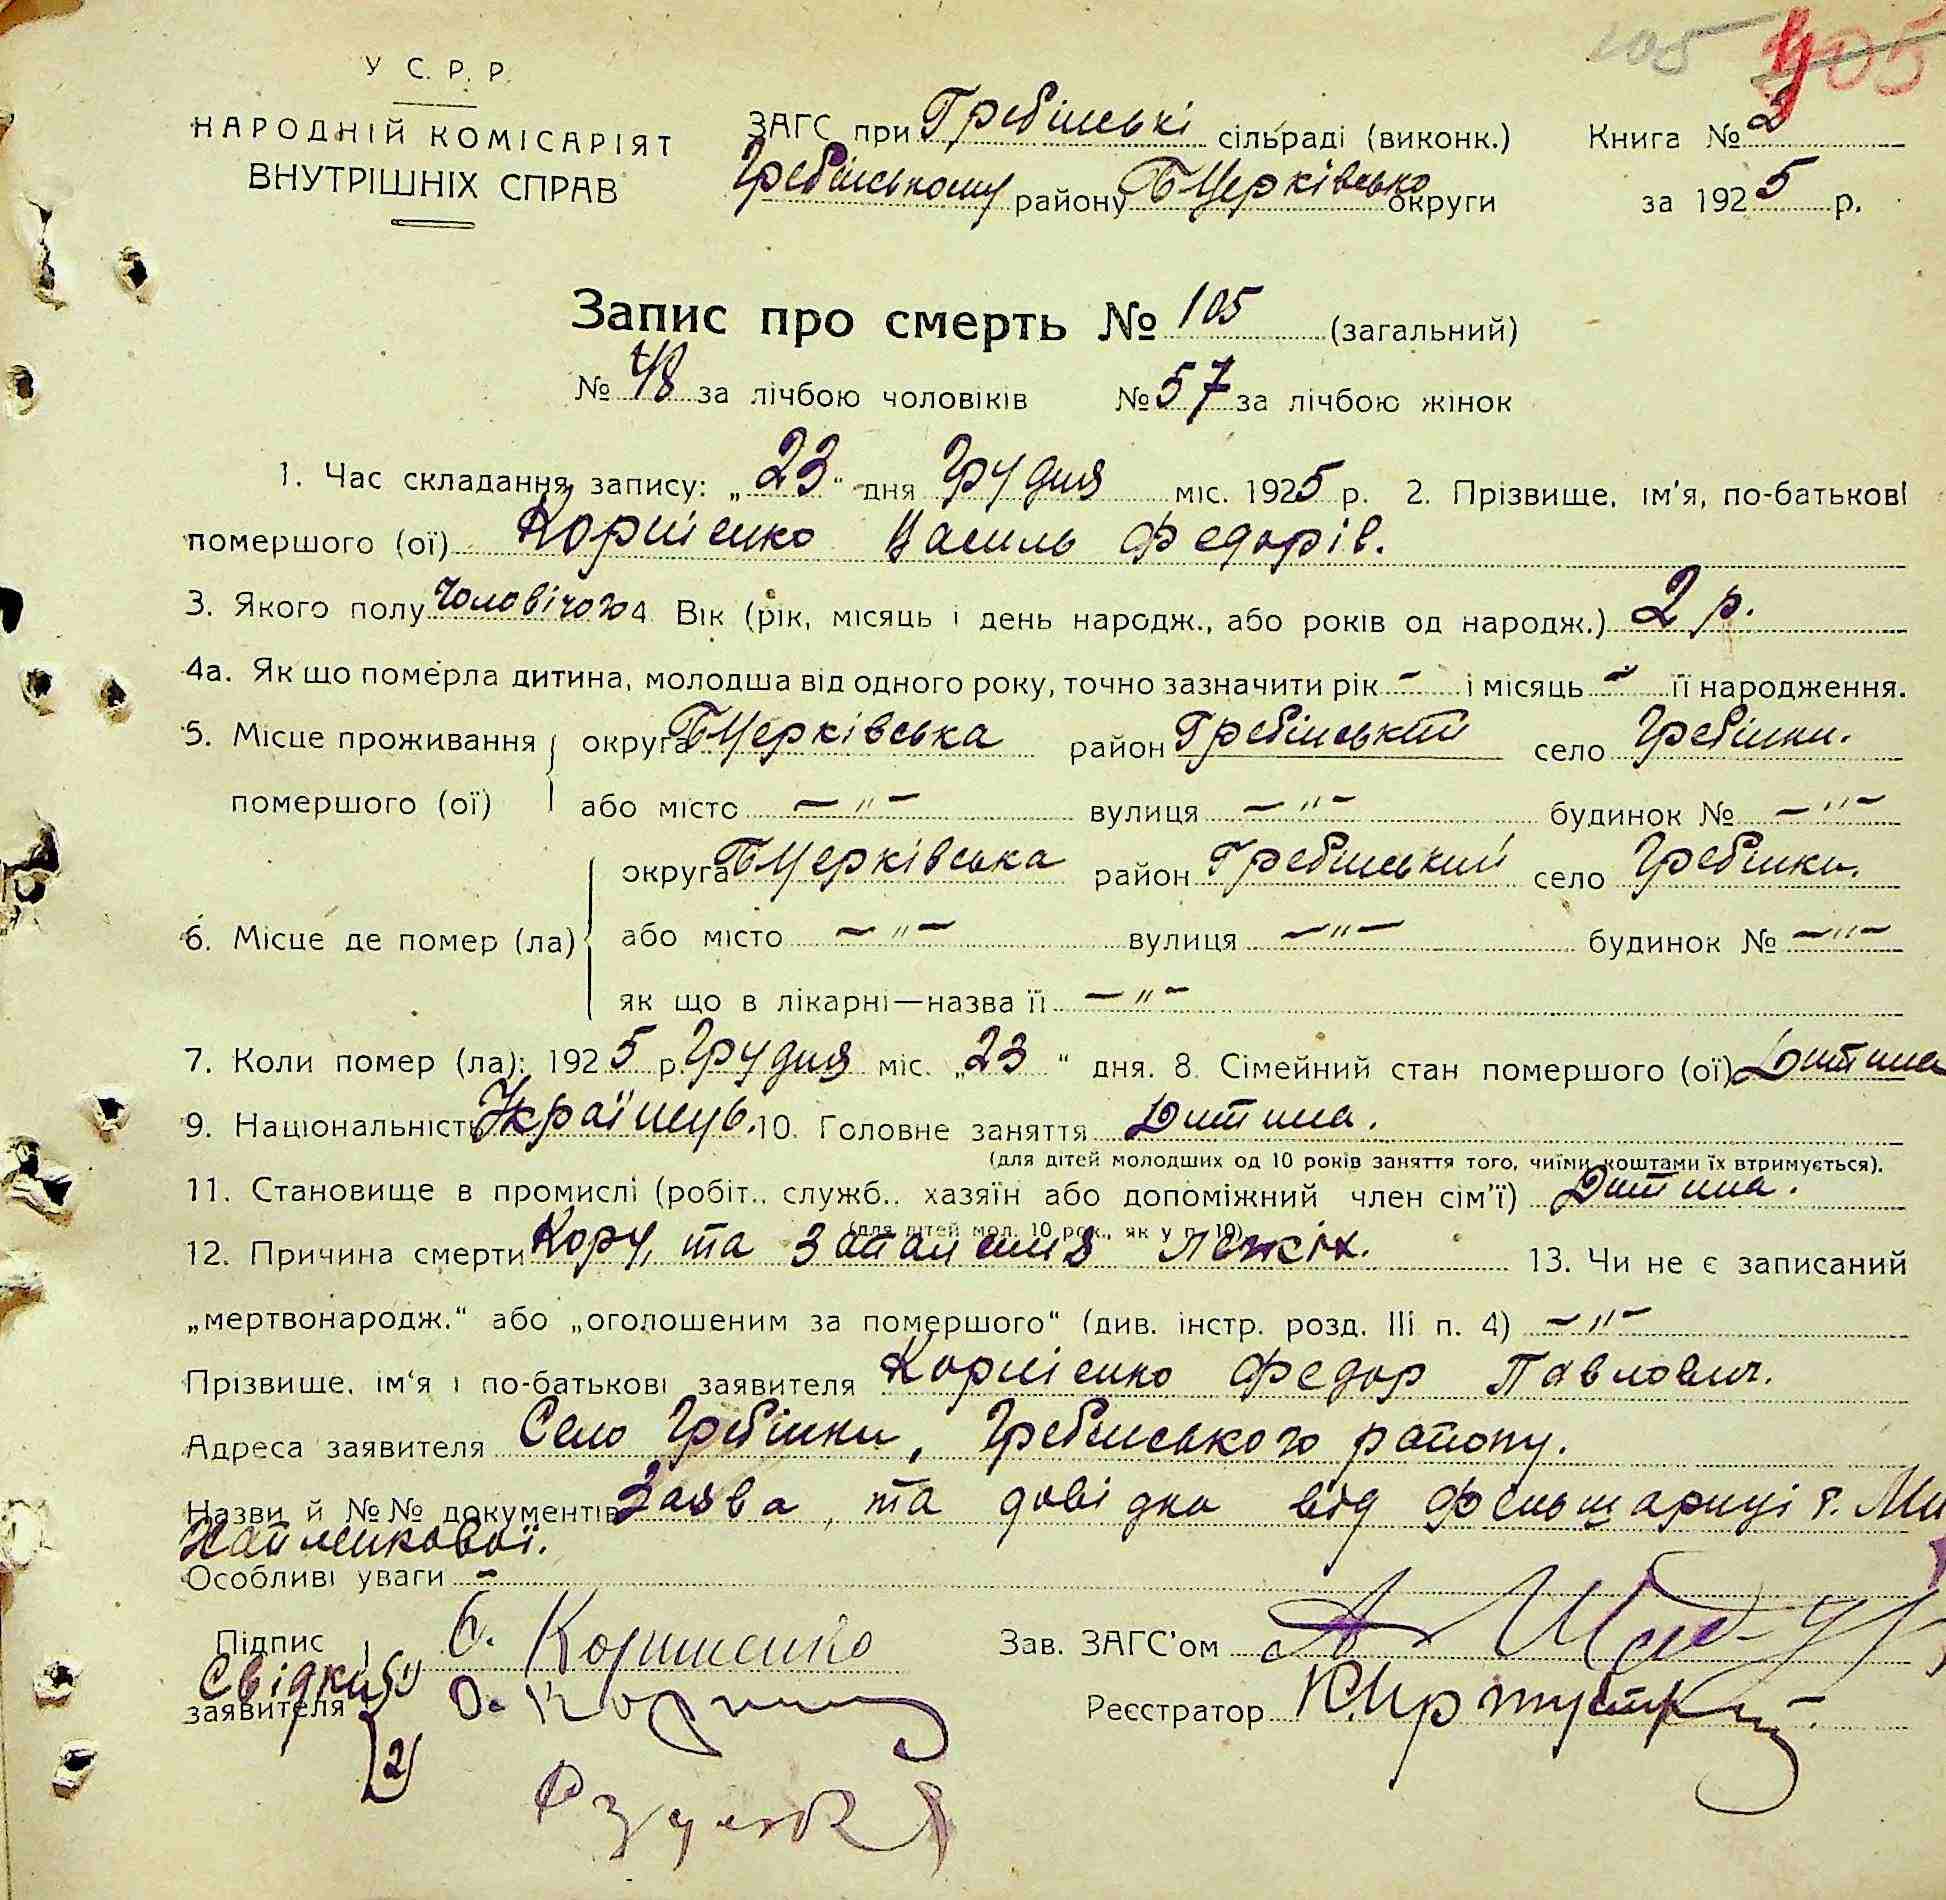 105 105
У С. Р. Р.
НАРОДНІЙ КОМІСАРІЯТ
ВНУТРІШНІХ СПРАВ
ЗАГС при Гребінські сільраді (виконк.) Книга № 2
Гребінському району БЦерківсько округи за 1925 р.
Запис про смерть № 105 (загальний)
№ 48 за лічбою чоловіків № 57 за лічбою жінок
1. Час складання запису: „23“ дня Грудня міс. 1925 р. 2. Прізвище, ім'я, по-батькові
помершого (ої) Корнієнко Василь Федорів.
3. Якого полу Чоловічого 4. Вік (рік, місяць і день народж., або років од народж.) 2 р.
4а. Як що померла дитина, молодша від одного року, точно зазначити рік - і місяць - її народження.
5. Місце проживання округа БЦерківська район Гребінський село Гребінки.
помершого (ої) або місто —"— вулиця —"— будинок № —"—
округа БЦерківська район Гребінський село Гребінки.
6. Місце де помер (ла) або місто —"— вулиця —"— будинок № —"—
як що в лікарні—назва її —"—
7. Коли помер (ла): 1925 р. Грудня міс. „23“ дня. 8. Сімейний стан помершого (ої) Дитина
9. Національність Українець. 10. Головне заняття Дитина.
(для дітей молодших од 10 років заняття того, чиїми коштами їх втримується).
11. Становище в промислі (робіт., служб., хазяїн або допоміжний член сім'ї) Дитина.
(для дітей мол. 10 рок., як у п. 10)
12. Причина смерти Кору, та запалення лежких. 13. Чи не є записаний
„мертвонародж.“ або „оголошеним за помершого“ (див. інстр. розд. III п. 4) —"—
Прізвище, ім'я і по-батькові заявителя Корнієнко Федор Павлович.
Адреса заявителя Село Гребінки, Гребінського району.
Назви й №№ документів Заява, та довідка від Фельшариці т. Ми
хайленкової.
Особливі уваги -
Підпис Зав. ЗАГС'ом
Свідки 1)
заявителя Реєстратор
2)